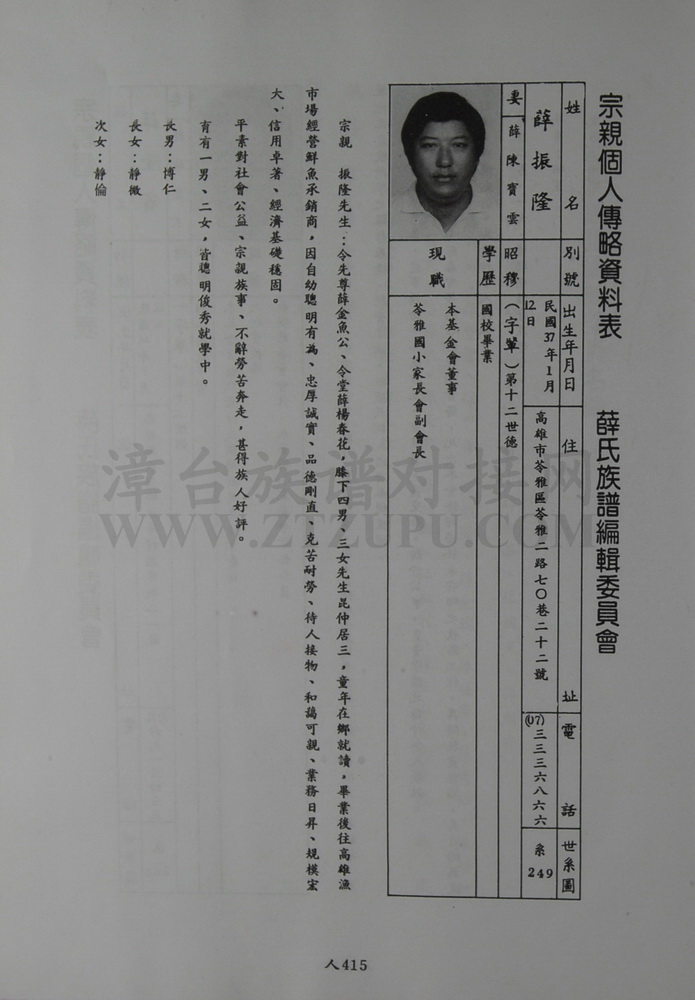 宗親個人傳略資料表　薛氏族譜編輯委員會
姓名　別號　出生年月日　住址　電話　世系圖
薛振隆　民國37年1月12日　高雄市苓雅區苓雅二路七〇巷二十二號　(07)三三三六八六六　系249
妻　薛陳寶雲　昭穆　（字輩）第十二世德
學歷　國校畢業
現職　本基金會董事
苓雅國小家長會副會長
宗親　振隆先生：令先尊薛金魚公、令堂薛楊春花，膝下四男、三女先生昆仲居三，童年在鄉就讀，畢業後往高雄漁
市場經營鮮魚承銷商，因自幼聰明有為、忠厚誠實、品德剛直、克苦耐勞、待人接物、和藹可親、業務日昇、規模宏
大、信用卓著、經濟基礎穩固。
平素對社會公益、宗親族事、不辭勞苦奔走，甚得族人好評。
育有一男、二女，皆聰明俊秀就學中。
長男：博仁
長女：靜微
次女：靜倫
人415
漳台族谱对接网
WWW.ZTZUPU.COM